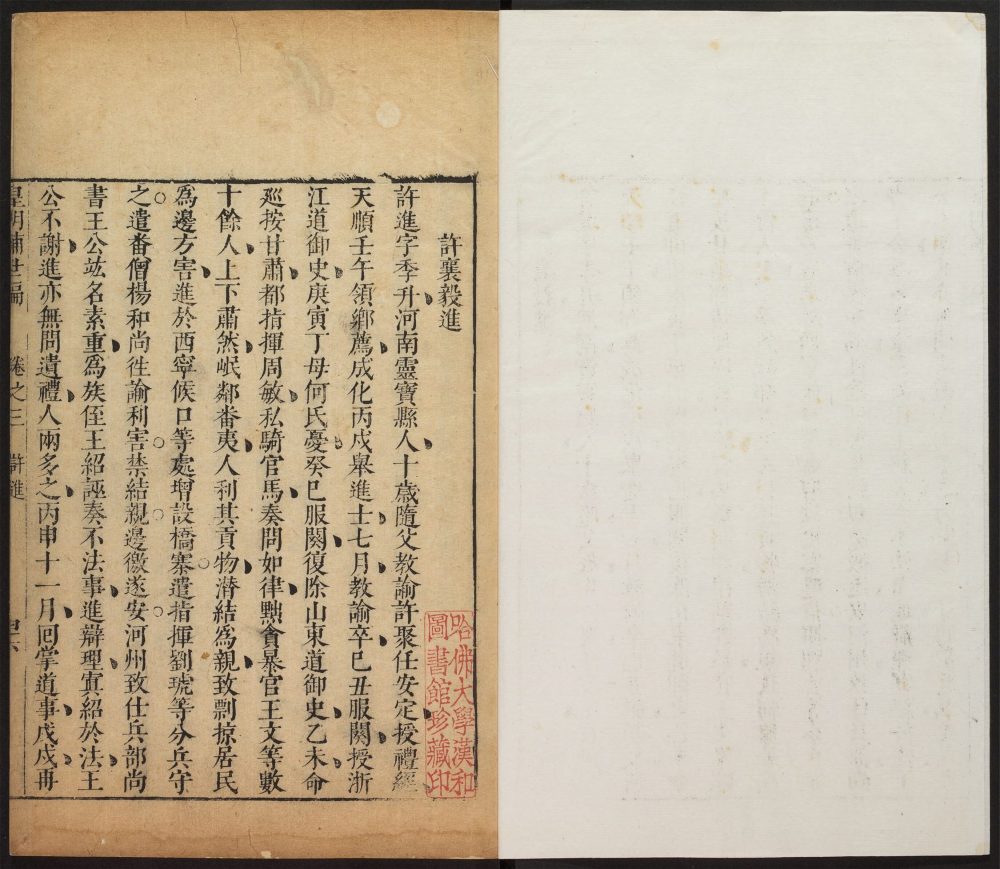 許襄毅進
許進字季升河南靈寶縣人十歲隨父教諭許聚任安定授禮經
天順壬午領鄉薦成化丙戌舉進士七月教諭卒巳丑服闋授浙
江道御史庚寅丁母何氏憂癸巳服闋復除山東道御史乙未命
廵按甘肅都指揮周敏私騎官馬奏問如律黜貪暴官王文等數
十餘人上下肅然岷鄰番夷人利其貢物潛結爲親致剽掠居民
爲邊方害進於西寧候口等處增設橋寨遣指揮劉琥等分兵守
之遣番僧楊和尚徃諭利害禁結親邊徼遂安河州致仕兵部尚
書王公竑名素重爲族侄王紹誣奏不法事進辯理寘紹於法王
公不謝進亦無問遺禮人兩多之丙申十一月囘掌道事戊戌再
皇明輔世編 卷之三 許進
哈佛大學漢和
圖書館珍藏印